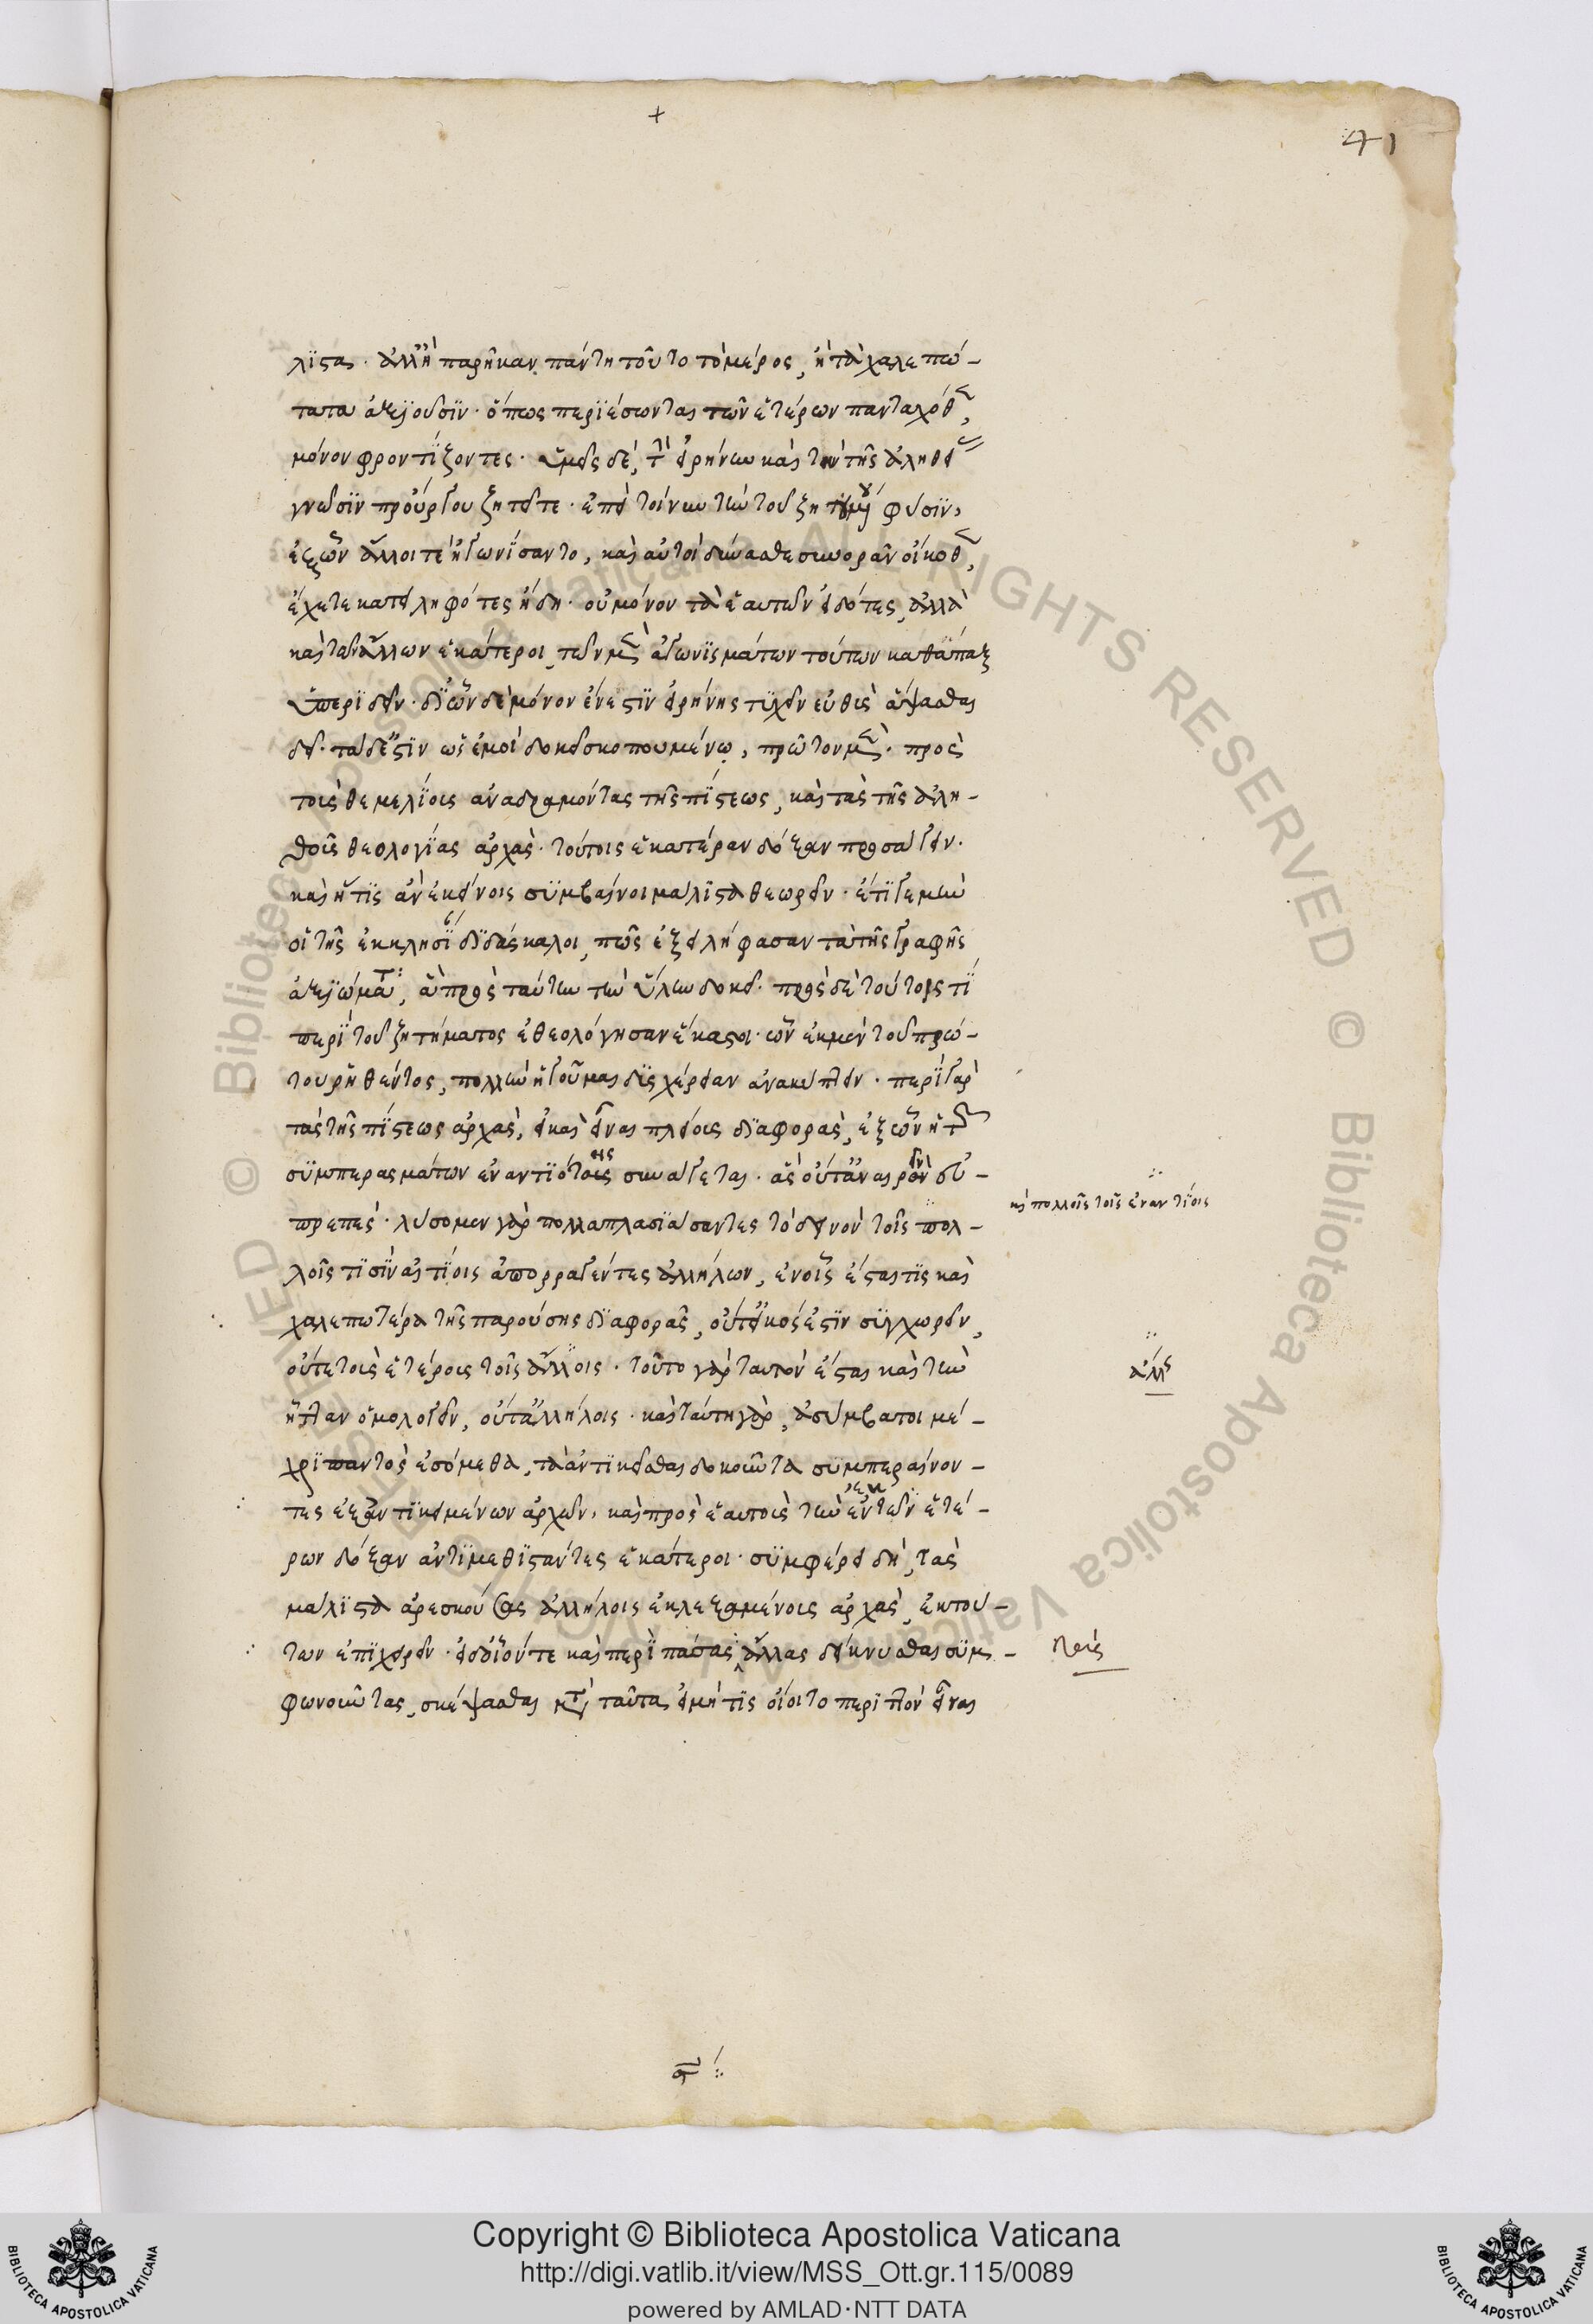 +
41
λίσται· ἀλλ' ἢ παρῆκαν πάντη τοῦτο τὸ μέρος, ἢ τὰ χαλεπώ-
τατα ἀξιοῦσιν· ὅπως περιέσονται τῶν ἑτέρων πανταχόθεν,
μόνον φροντίζοντες· ὑμεῖς δὲ, τὴν εἰρήνην καὶ τὴν τῆς ἀληθείας
γνῶσιν προὔργου ζητεῖτε· ἐπεὶ τοίνυν τὴν τοῦ ζητουμένου φύσιν,
ἐξ ὧν ἄλλοι τε ἠγωνίσαντο, καὶ αὐτοὶ δύνασθε συνορᾶν οἴκοθεν,
ἔχετε κατειληφότες ἤδη· οὐ μόνον τὰ ἑαυτῶν εἰδότες, ἀλλὰ
καὶ τῶν ἄλλων ἑκάτεροι, τῶν μὲν ἀγωνισμάτων τούτων καθάπαξ
ὑπεριδεῖν· δι' ὧν δὲ μόνον ἔνεστιν εἰρήνης τυχεῖν εὐθὺς ἅψασθαι
δεῖ· τὰ δέ ἐστιν ὡς ἐμοὶ δοκεῖ σκοπουμένῳ, πρῶτον μὲν· πρὸς
τοὺς θεμελίους ἀναδραμόντας τῆς πίστεως, καὶ τὰς τῆς ἀλη-
θοῦς θεολογίας ἀρχὰς· τούτοις ἑκατέραν δόξαν προσάγειν·
καὶ ἥτις ἂν ἐκείνοις συμβαίνοι μάλιστα θεωρεῖν· ἔτι γε μὴν
οἱ τῆς ἐκκλησίας διδάσκαλοι, πῶς ἐξειλήφασαν τὰ τῆς γραφῆς
ἀξιώματα, ἃ πρὸς ταύτην τὴν ὕλην δοκεῖ· πρὸς δὲ τούτοις τί
περὶ τοῦ ζητήματος ἐθεολόγησαν ἕκαστοι· ὧν ἐκ μὲν τοῦ πρώ-
του ῥηθέντος, πολλὴν ἡγοῦμαι δυσχέρειαν ἀνακύπτειν· περὶ γὰρ
τὰς τῆς πίστεως ἀρχὰς, εἰκὸς εἶναι πλείους διαφορὰς, ἐξ ὧν ἡ τῶν
συμπερασμάτων ἐναντιότης συνάγεται· ἃς οὔτ' ἀναιρεῖν εὐ-
πρεπὲς· λύσομεν γὰρ πολλαπλασιάσαντες τὸ δεινὸν τοῖς πολ-
λοῖς τισὶν αἰτίοις ἀπορραγέντες ἀλλήλων, ἐν οἷς ἔσται τις καὶ
χαλεπωτέρα τῆς παρούσης διαφορᾶς, οὔτ' εἰκός ἐστιν συγχωρεῖν,
οὔτε τοὺς ἑτέρους τοῖς ἄλλοις· τοῦτο γὰρ ταυτὸν ἔσται καὶ τὴν
ἧτταν ὁμολογεῖν, οὔτ' ἀλλήλοις· καὶ ταύτῃ γὰρ, ἀσύμβατοι μέ-
χρι παντὸς ἐσόμεθα, τὰ ἀντικεῖσθαι δοκοῦντα συμπεραίνον-
τες ἐξ ἀντικειμένων ἀρχῶν, καὶ πρὸς ἑαυτοὺς τὴν ἐκ τῶν ἑτέ-
ρων δόξαν ἀντιμεθιστάντες ἑκάτεροι· συμφέρει δὴ, τὰς
μάλιστα ἀρεσκούσας ἀλλήλοις ἐκλεξαμένοις ἀρχὰς, ἐκ τού-
των ἐπιχειρεῖν· εἰς δέον τε καὶ περὶ πάσας ἄλλας δείκνυσθαι συμ-
φωνοῦντας, σκέψασθαι μετὰ ταῦτα, εἰ μή τις οἴοιτο περιττὸν εἶναι
καὶ πολλοῖς τοῖς ἐναντίοις
ἀλλ